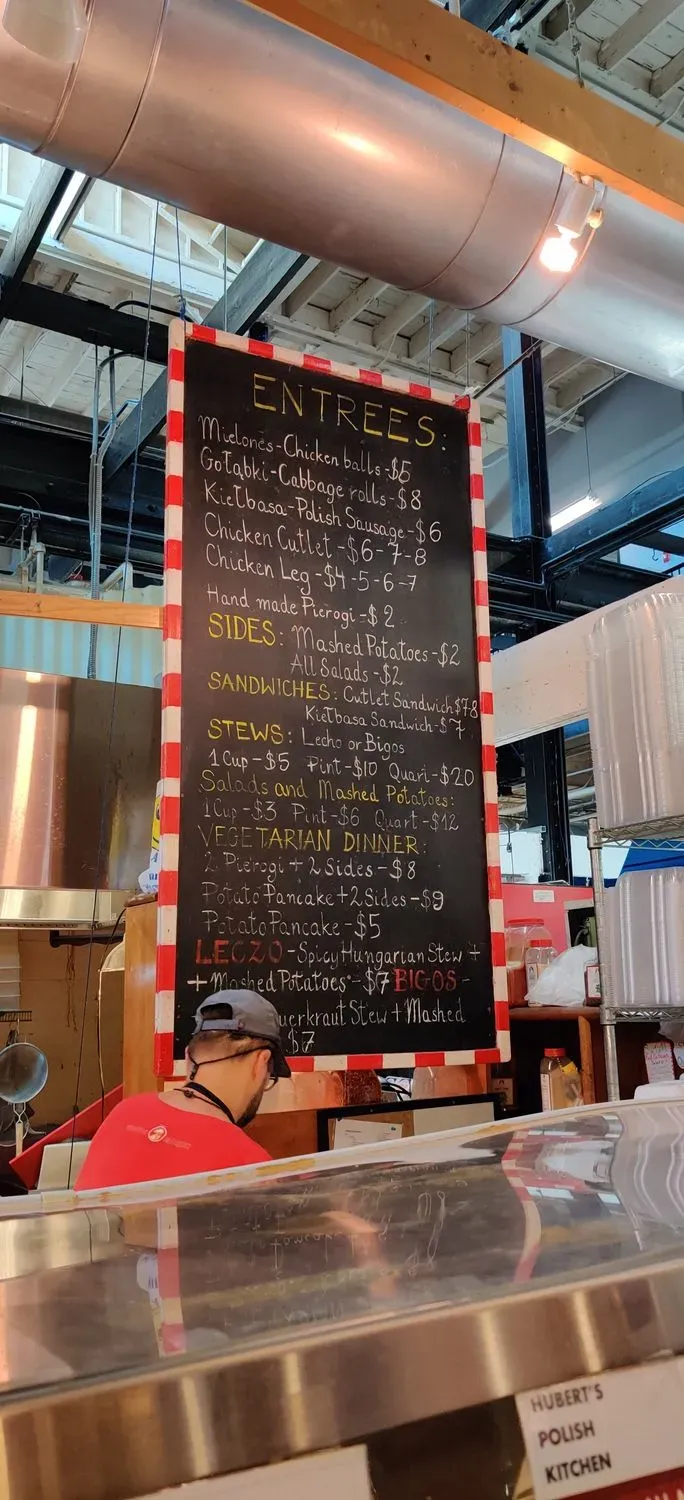 ENTREES:
Mielones-Chicken balls-$5
Gołąbki-Cabbage rolls-$8
Kiełbasa-Polish Sausage-$6
Chicken Cutlet-$6-7-8
Chicken Leg-$4-5-6-7
Hand made Pierogi-$2
SIDES: Mashed Potatoes-$2
All Salads-$2
SANDWICHES: Cutlet Sandwich $7-8
Kiełbasa Sandwich-$7
STEWS: Lecho or Bigos
1Cup-$5 Pint-$10 Quart-$20
Salads and Mashed Potatoes:
1Cup-$3 Pint-$6 Quart-$12
VEGETARIAN DINNER:
2 Pierogi + 2 Sides-$8
Potato Pancake+2 Sides-$9
Potato Pancake-$5
LECZO-Spicy Hungarian Stew +
+ Mashed Potatoes-$7 BIGOS-
uerkraut Stew + Mashed
$7
HUBERT'S
POLISH
KITCHEN